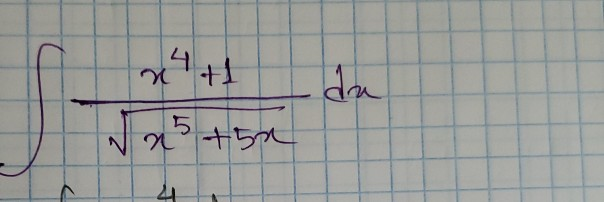 ∫ (x⁴+1)/√(x⁵+5x) dx